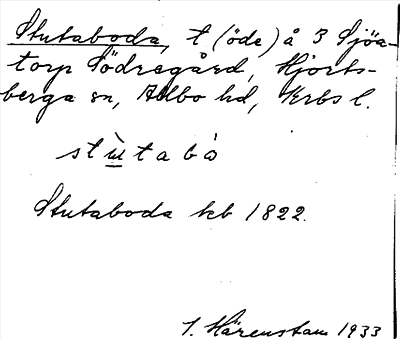 Stutaboda, t (öde) å 3 Sjöa-
torp Södregård, Hjorts-
berga sn, Allbo hd, Krbs l.
stùtabo
Stutaboda kb 1822.
I. Härenstam 1933